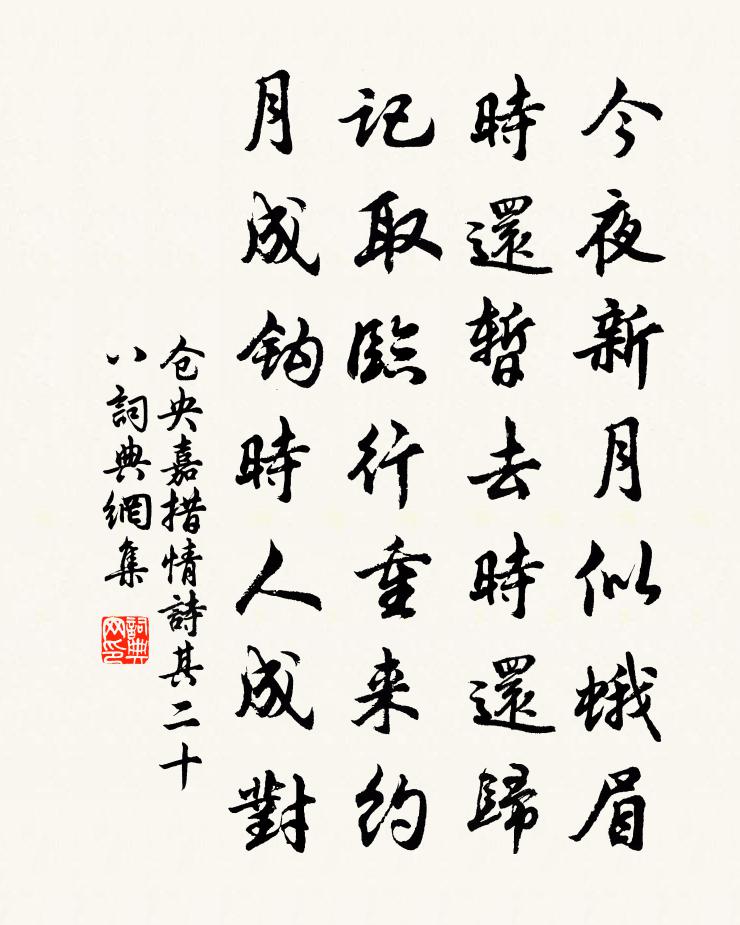 今夜新月似蛾眉
時還暫去時還歸
記取臨行重来約
月成鈎時人成對
仓央嘉措情詩其二十
八詞典網集
詞典网印